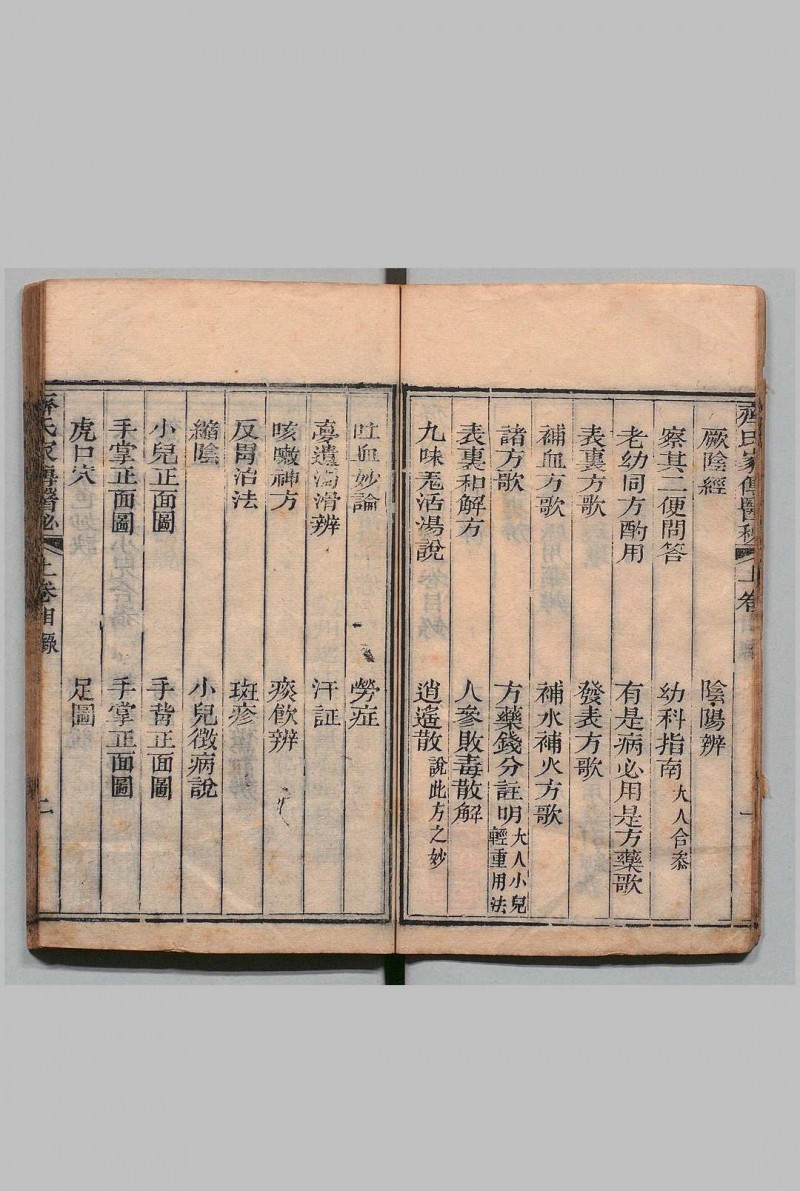 齊氏家傳醫秘 上卷目錄 一
厥陰經 陰陽辨
察其二便問答 幼科指南 大人合叅
老幼同方酌用 有是病必用是方藥歌
表裏方歌 發表方歌
補血方歌 補水補火方歌
諸方歌 方藥錢分註明 大人小兒輕重用法
表裏和解方 人參敗毒散解
九味羌活湯說 逍遙散 說此方之妙
吐血妙論 勞症
夢遺滑辨 汗証
咳嗽神方 痰飲辨
反胃治法 斑疹
縮陰 小兒徵病說
小兒正面圖 手背正面圖
手掌正面圖 手掌正面圖
虎口穴 足圖
齊氏家傳醫祕 上卷目錄 二